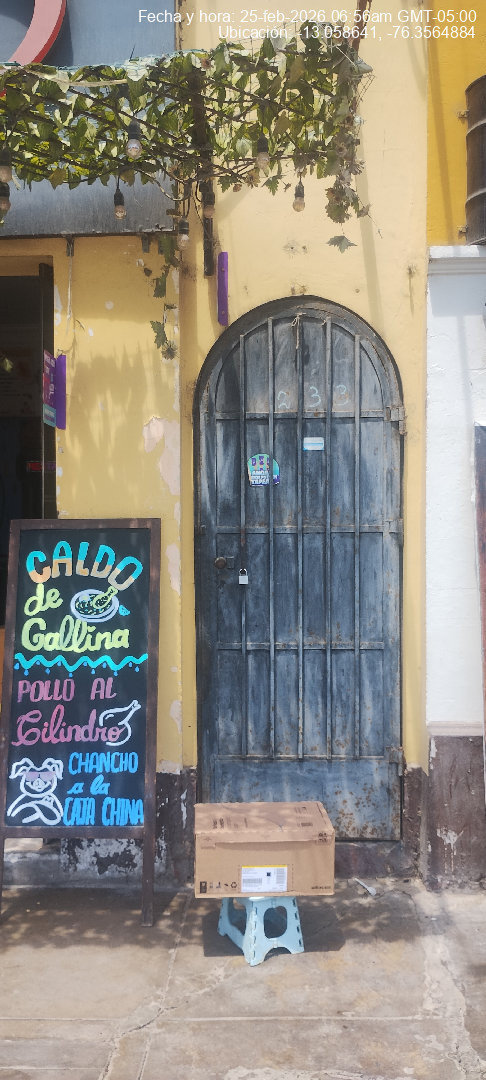 Fecha y hora: 25-feb-2026 06:56am GMT-05:00
Ubicación: -13.058641, -76.3564884
233
CALDO
de
Gallina
POLLO AL
Cilindro
CHANCHO
a la
CAJA CHINA